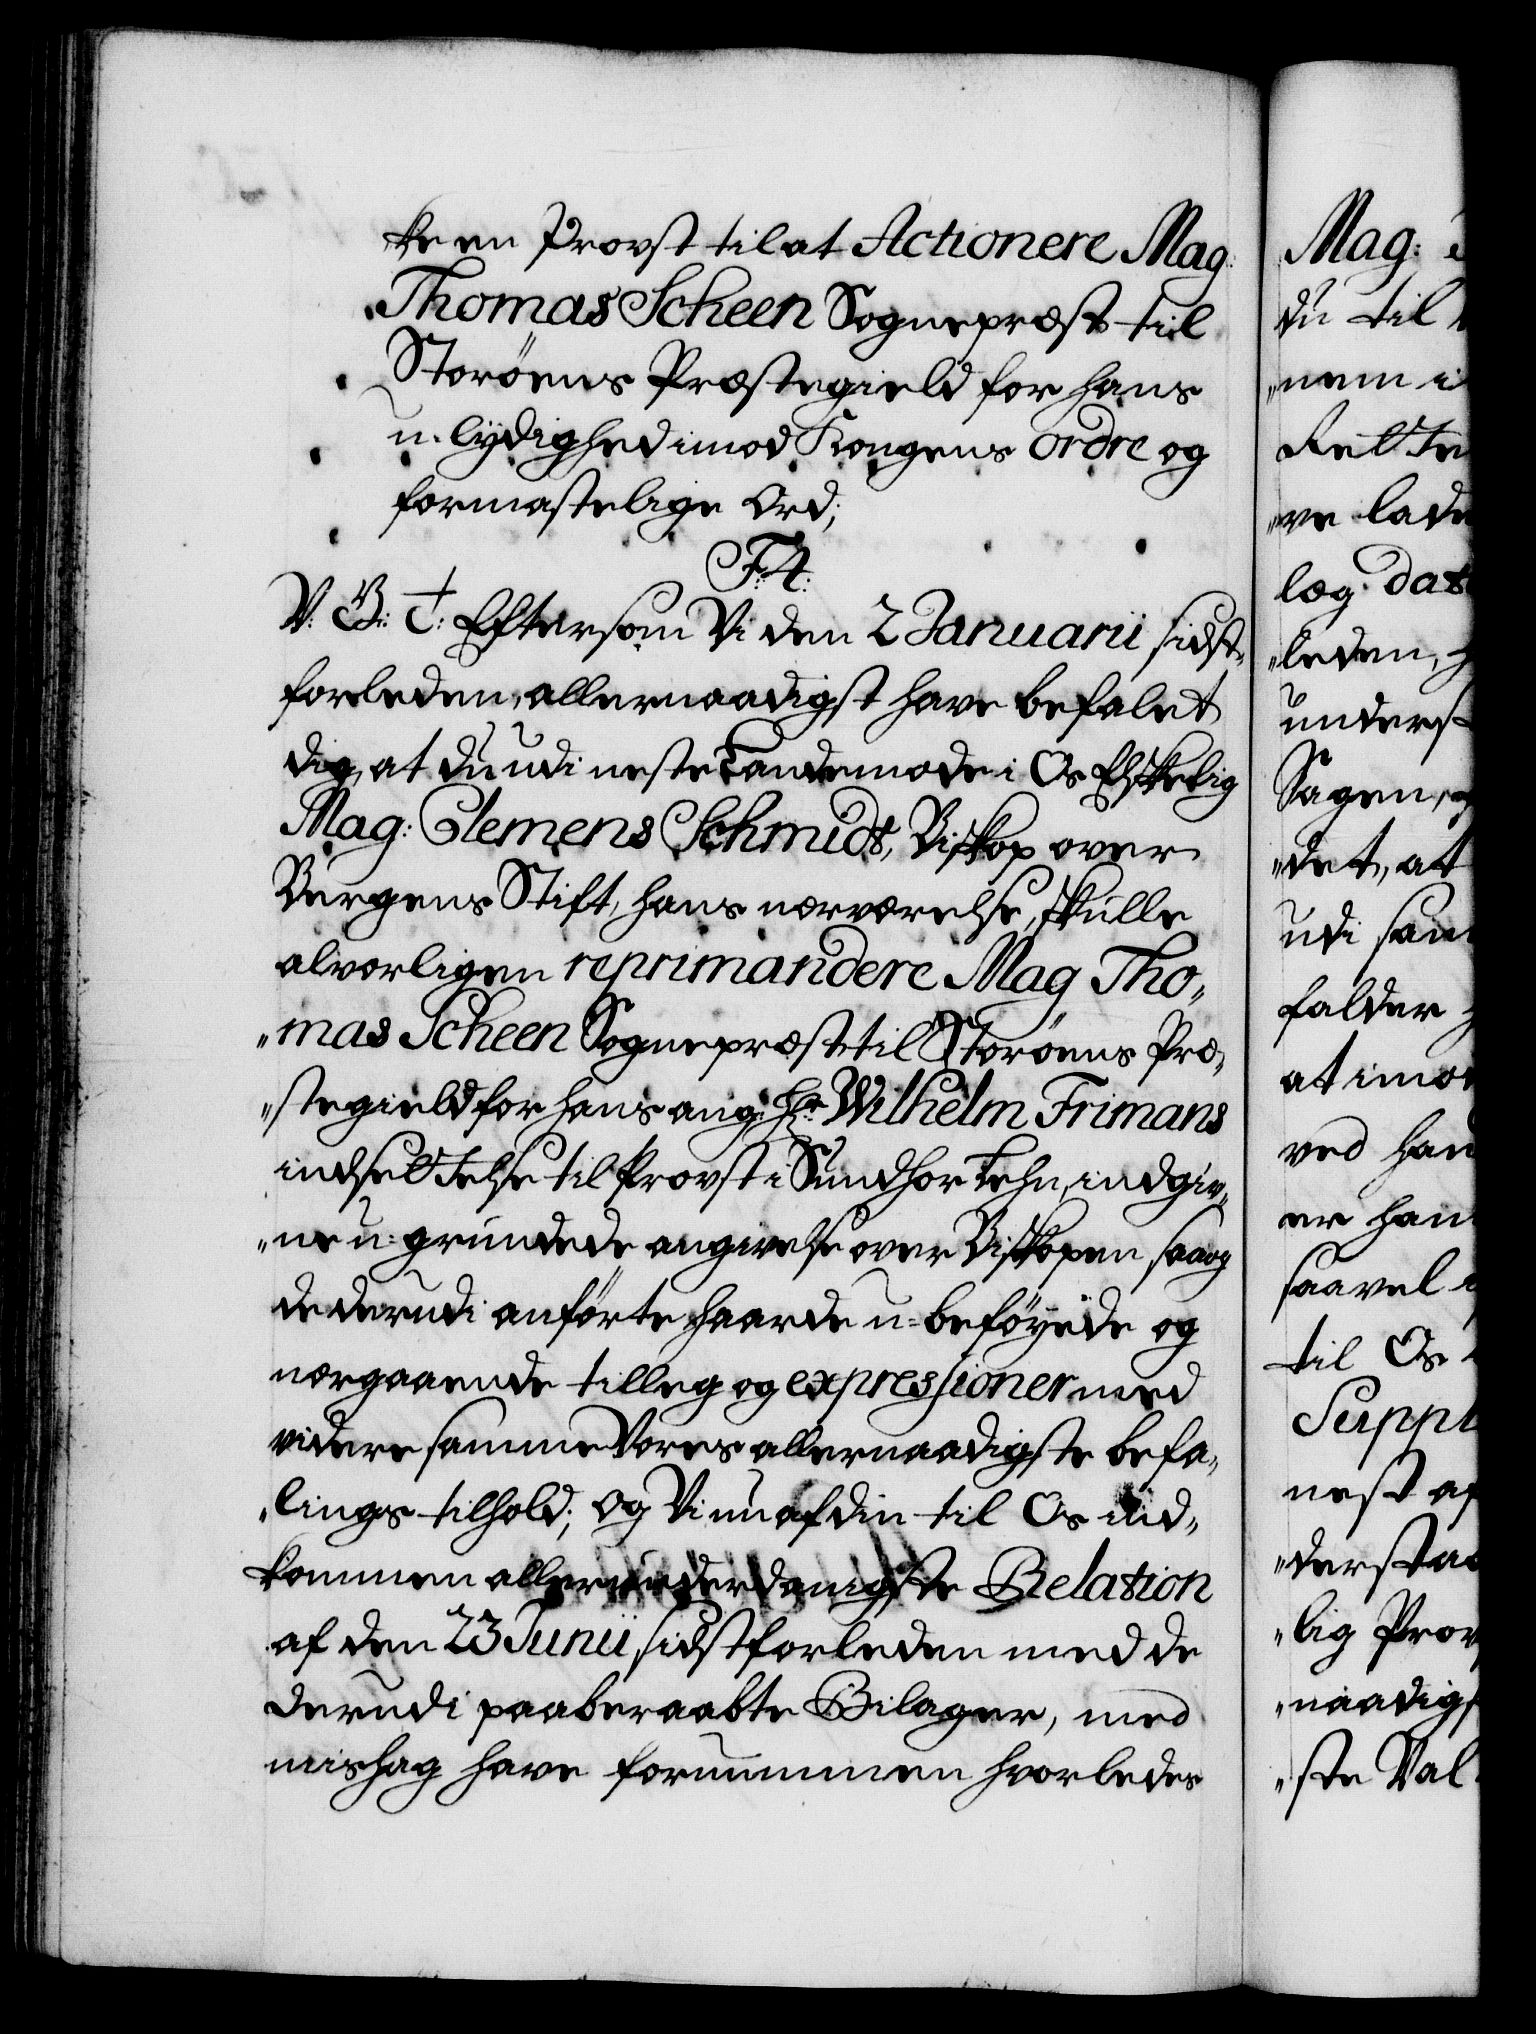 ke en Provst til at Actionere Mag:
Thomas Scheen Sognepræst til
Storöens Præstegield for hans
u-lydighed imod Kongens ordre og
formastelige Ord;
F: 4:
V. G: T: Eftersom Vi den 2 Januarii sidst-
forleden, allernaadigst have befalet
dig, at du udi neste Landemode i Os Elskelig
Mag: Clemens Schmidt, Biskop over
Bergens Stift, hans nærværelse, skulle
alvorligen reprimandere Mag Tho„
„mas Scheen Sognepræst til Storöens Præ„
„stegield for hans ang: Hr: Wilhelm Frimans
indsettelse til Provst i Sundhor Lehn, indgiv„
„ne u-grundede angivelse over Biskopen saa og
de derudi anförte haarde u-beföyede og
nærgaaende tilleg og expressioner med
videre samme Vores allernaadigste befa„
„lings tilhold; og Vi nu af din til Os ind„
kommen allerunderdanigste Relation
af den 23 Junii sidstforleden med de
derudi paaberaabte Bilager, med
mishag have fornummen hvorledes
Mag:
du til
„nem i
Rette
„ve lade
læg. dat
„leden,
underst
Sagen,
„det, at
udi sam
falder
at imo
ved han
er han
saavel
til Os
Suppl
nest af
„derstaa
„lig Prov
„naadigs
„ste Val